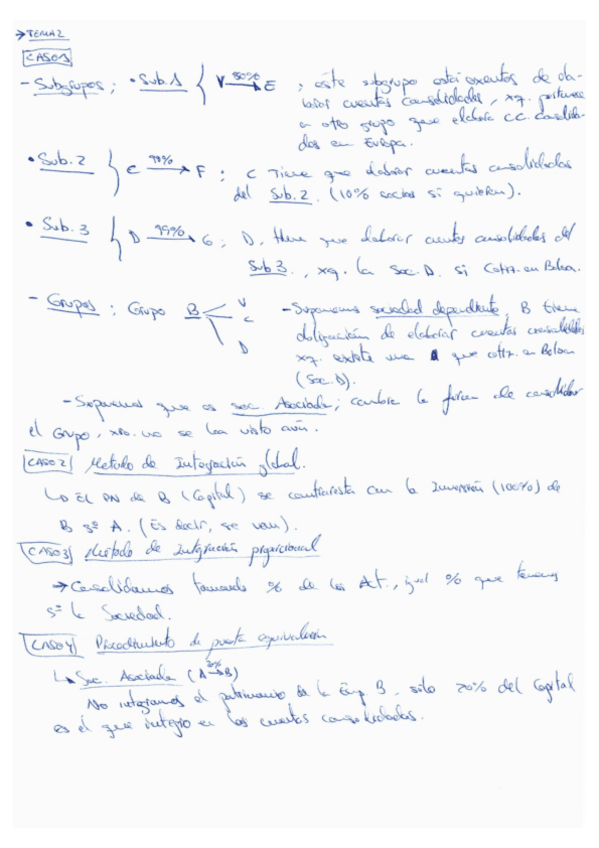 → TEMA 2
CASO 1
- Subgrupos; • Sub. 1 { V 80%→ E ; este subgrupo está exentos de
cuentas consolidadas, xq. pertenece
a otro grupo que elabora c.c. consolida-
das en Europa.
• Sub. 2 { C 90%→ F ; C tiene que elaborar cuentas consolidadas
del Sub. 2. (10% socios si quieren).
• Sub. 3 { D 99%→ G ; D, tiene que elaborar cuentas consolidadas del
Sub 3., xq. la Soc. D. si Cotiz. en Bolsa.
- Grupos ; Grupo B V C D - Suponemos sociedad dependiente, B tiene
obligación de elaborar cuentas consolidadas
xq. existe una que cotiz. en Bolsa
(Soc. D).
- Suponemos que es soc. Asociada; cambia la forma de consolidar
el Grupo, xro. no se ha visto aún.
CASO 2 Método de Integración global.
↳ El PN de B (Capital) se contrarresta con la Inversión (100%) de
B sº A. (Es decir, se van).
CASO 3 Método de Integración proporcional
→ Consolidamos tomando % de los Act., igual % que tenemos
sº la Sociedad.
CASO 4 Procedimiento de puesta equivalencia
↳ Soc. Asociada (A 20%→ B)
No integramos el patrimonio de la Emp B, sólo 20% del Capital
es el que integro en las cuentas consolidadas.